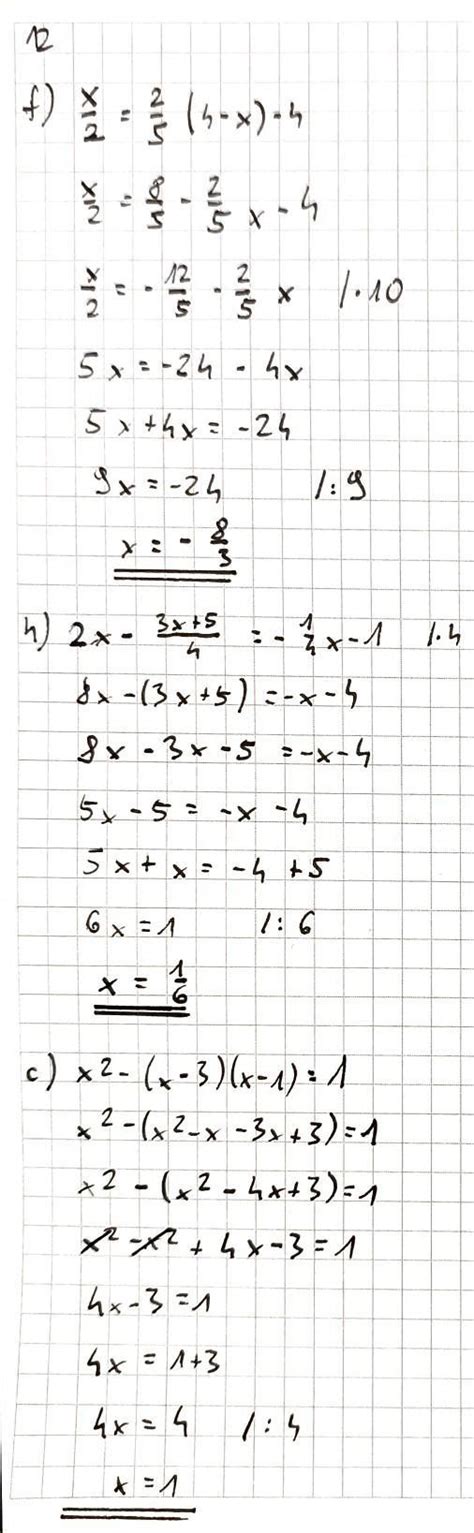 12
f) x/2 = 2/5 (4-x) - 4
x/2 = 8/5 - 2/5 x - 4
x/2 = - 12/5 - 2/5 x /·10
5x = -24 - 4x
5x + 4x = -24
9x = -24 /:9
x = - 8/3
h) 2x - (3x+5)/4 = - 1/4 x - 1 /·4
8x - (3x+5) = -x - 4
8x - 3x - 5 = -x - 4
5x - 5 = -x - 4
5x + x = -4 + 5
6x = 1 /: 6
x = 1/6
c) x² - (x-3)(x-1) = 1
x² - (x² - x - 3x + 3) = 1
x² - (x² - 4x + 3) = 1
x² - x² + 4x - 3 = 1
4x - 3 = 1
4x = 1+3
4x = 4 /: 4
x = 1